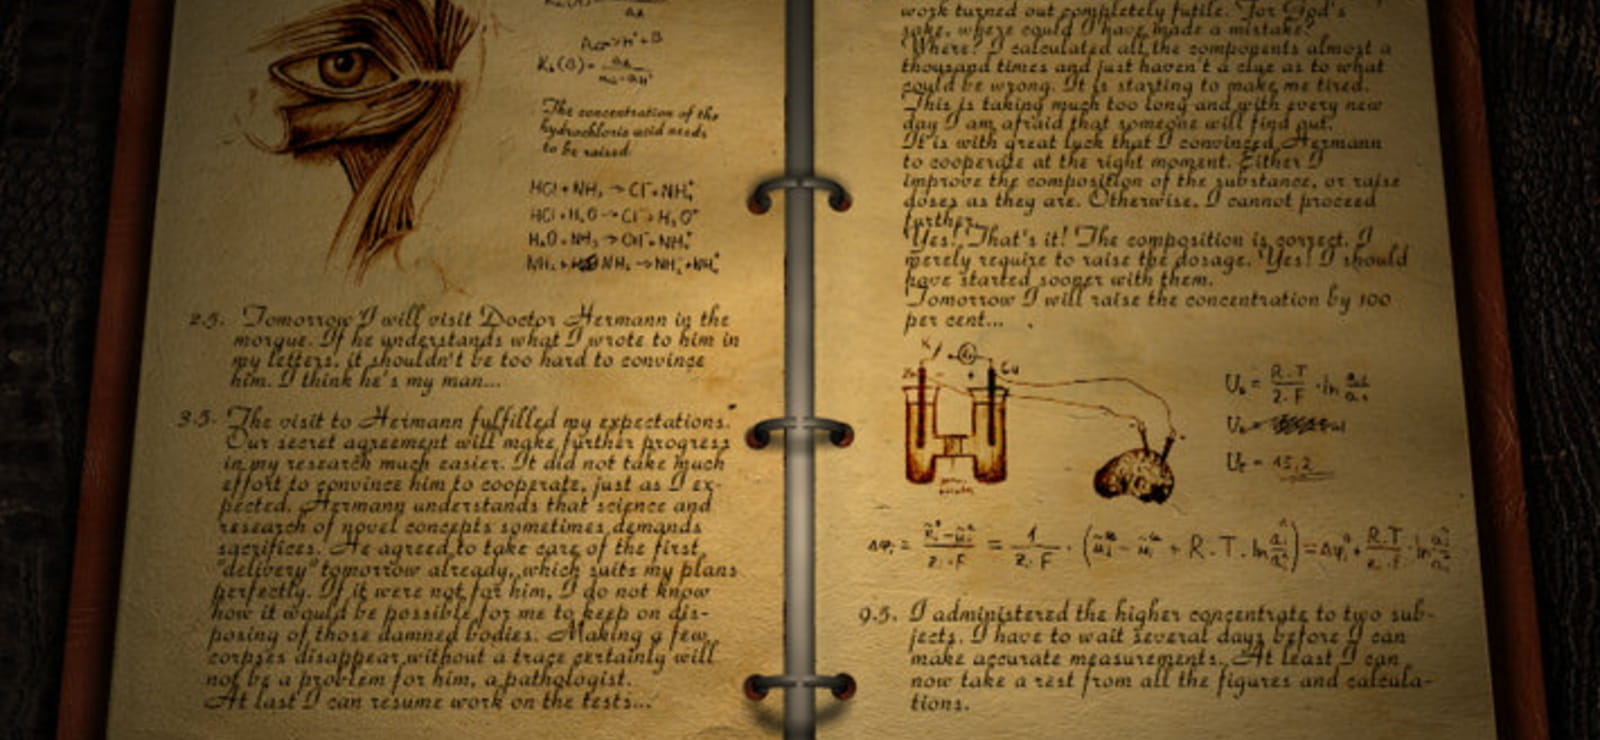 The concentration of the
hydrochloric acid needs
to be raised.
HCl + NH₃ → Cl⁻ + NH₄⁺
HCl + H₂O → Cl⁻ + H₃O⁺
H₂O + NH₃ → OH⁻ + NH₄⁺
2.5. Tomorrow I will visit Doctor Hermann in the
morgue. If he understands what I wrote to him in
my letters, it shouldn't be too hard to convince
him. I think he's my man...
3.5. The visit to Hermann fulfilled my expectations.
Our secret agreement will make further progress
in my research much easier. It did not take much
effort to convince him to cooperate, just as I ex-
pected. Hermann understands that science and
research of novel concepts sometimes demands
sacrifices. He agreed to take care of the first
"delivery" tomorrow already, which suits my plans
perfectly. If it were not for him, I do not know
how it would be possible for me to keep on dis-
posing of those damned bodies. Making a few
corpses disappear without a trace certainly will
not be a problem for him, a pathologist.
At last I can resume work on the tests...
work turned out completely futile. For God's
sake, where could I have made a mistake?
Where? I calculated all the components almost a
thousand times and just haven't a clue as to what
could be wrong. It is starting to make me tired.
This is taking much too long and with every new
day I am afraid that someone will find out.
It is with great luck that I convinced Hermann
to cooperate at the right moment. Either I
improve the composition of the substance, or raise
doses as they are. Otherwise, I cannot proceed
further.
Yes! That's it! The composition is correct. I
merely require to raise the dosage. Yes! I should
have started sooner with them.
Tomorrow I will raise the concentration by 100
per cent...
Cu
9.5. I administered the higher concentrate to two sub-
jects. I have to wait several days before I can
make accurate measurements. At least I can
now take a rest from all the figures and calcula-
tions.